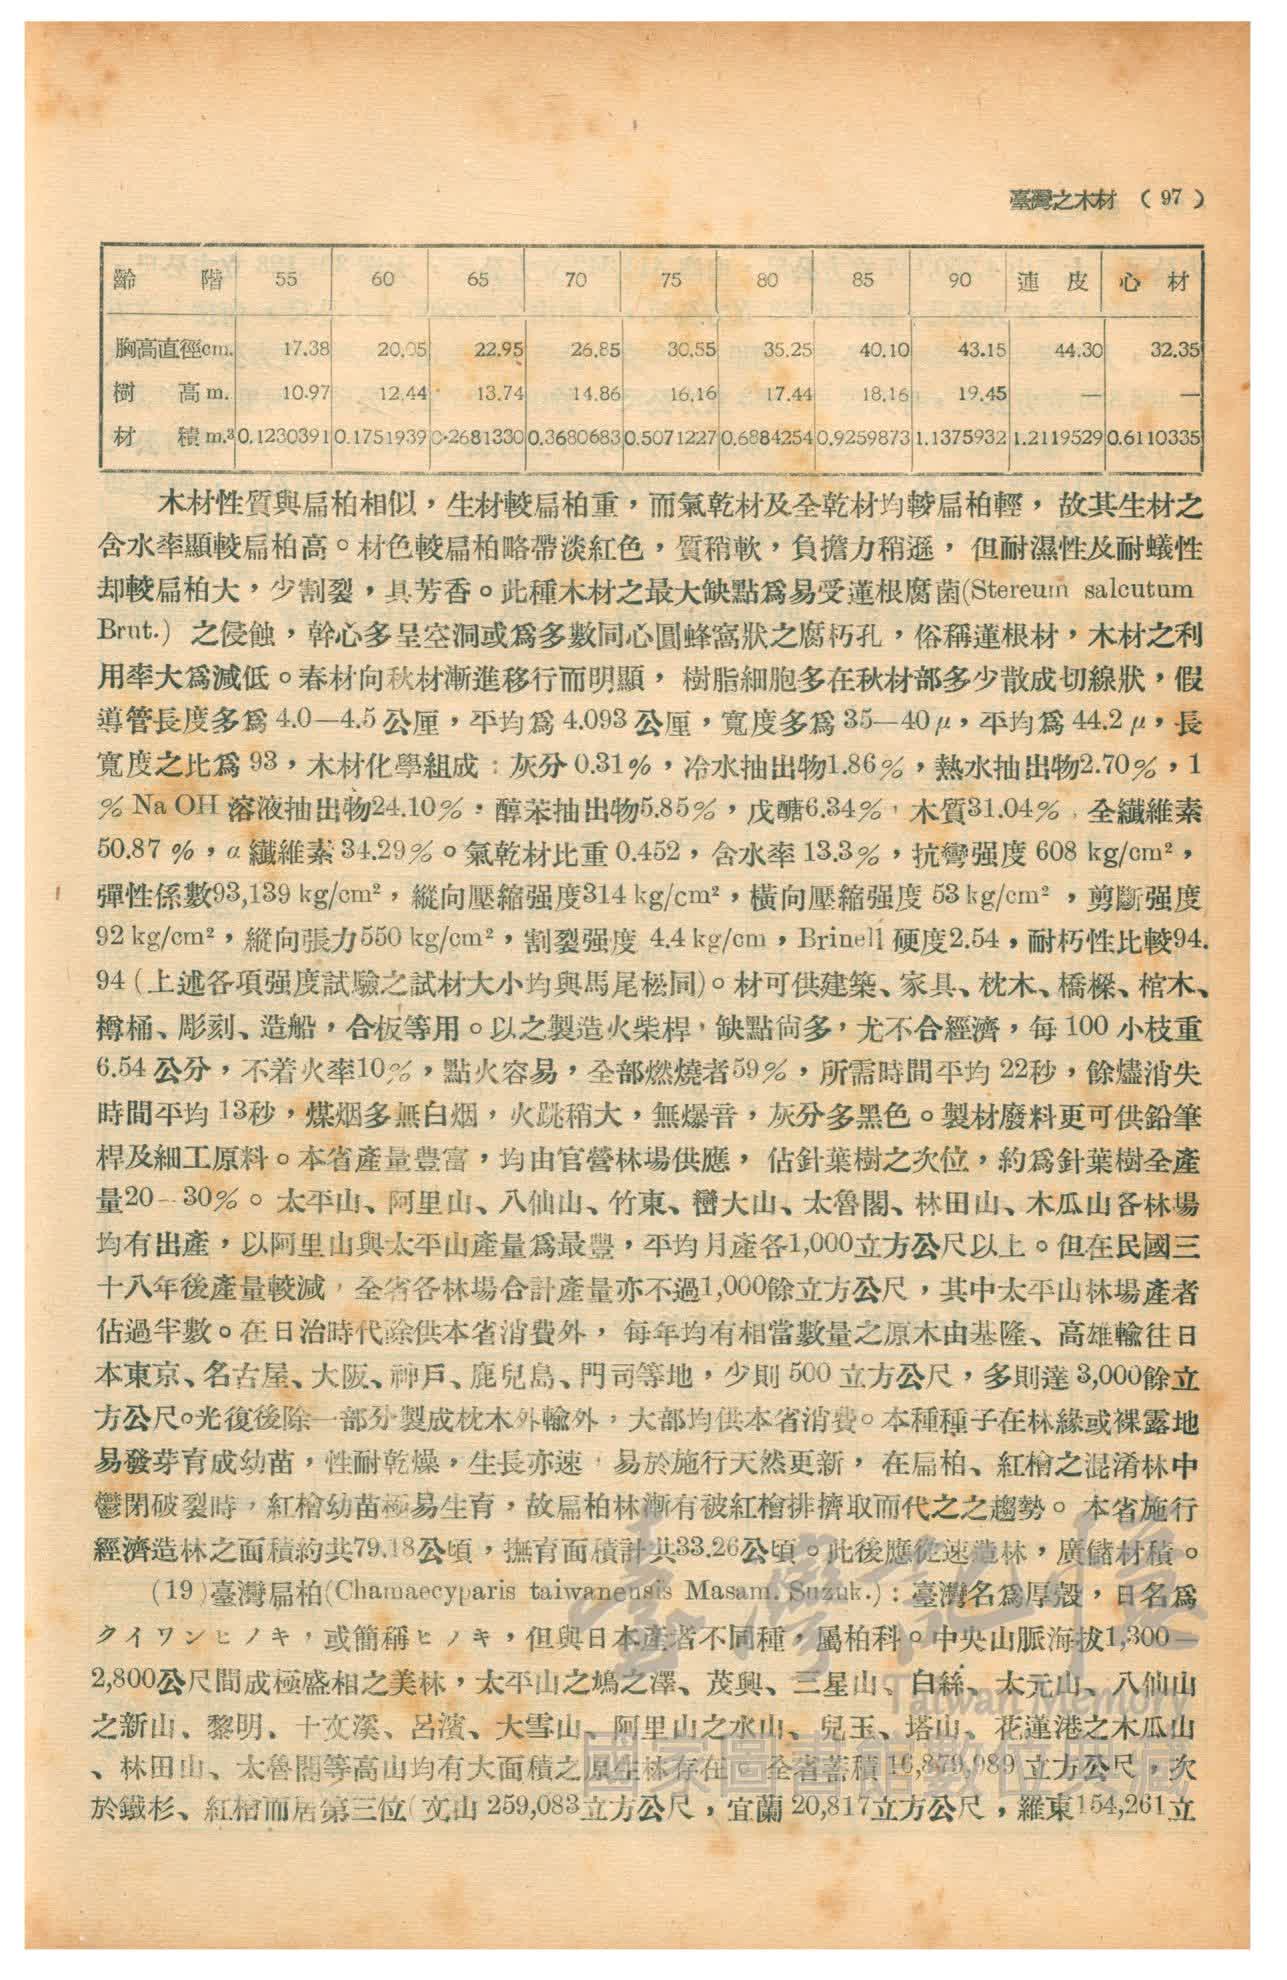 臺灣之木材 ( 97 )
齡 階 55 60 65 70 75 80 85 90 連 皮 心 材
胸高直徑cm. 17.38 20.05 22.95 26.85 30.55 35.25 40.10 43.15 44.30 32.35
樹 高 m. 10.97 12.44 13.74 14.86 16.16 17.44 18.16 19.45 — —
材 積 m.³ 0.1230391 0.1751939 0.2681330 0.3680683 0.5071227 0.6884254 0.9259873 1.1375932 1.2119529 0.6110335
木材性質與扁柏相似，生材較扁柏重，而氣乾材及全乾材均較扁柏輕，故其生材之
含水率顯較扁柏高。材色較扁柏略帶淡紅色，質稍軟，負擔力稍遜，但耐濕性及耐蟻性
却較扁柏大，少割裂，具芳香。此種木材之最大缺點爲易受蓮根腐菌(Stereum salcutum
Brut.) 之侵蝕，幹心多呈空洞或爲多數同心圓蜂窩狀之腐朽孔，俗稱蓮根材，木材之利
用率大爲減低。春材向秋材漸進移行而明顯，樹脂細胞多在秋材部多少散成切線狀，假
導管長度多爲 4.0—4.5 公厘，平均爲 4.093 公厘，寬度多爲 35—40 μ，平均爲 44.2 μ，長
寬度之比爲 93，木材化學組成：灰分 0.31%，冷水抽出物1.86%，熱水抽出物2.70%，1
% Na OH 溶液抽出物24.10%，醇苯抽出物5.85%，戊醣6.34%，木質31.04%，全纖維素
50.87 %，α 纖維素 34.29%。氣乾材比重 0.452，含水率 13.3%，抗彎强度 608 kg/cm²，
彈性係數93,139 kg/cm²，縱向壓縮强度314 kg/cm²，橫向壓縮强度 53 kg/cm²，剪斷强度
92 kg/cm²，縱向張力550 kg/cm²，割裂强度 4.4 kg/cm，Brinell 硬度2.54，耐朽性比較94.
94 (上述各項强度試驗之試材大小均與馬尾松同)。材可供建築、家具、枕木、橋樑、棺木、
樽桶、彫刻、造船，合板等用。以之製造火柴桿，缺點尙多，尤不合經濟，每 100 小枝重
6.54 公分，不着火率10%，點火容易，全部燃燒者59%，所需時間平均 22秒，餘燼消失
時間平均 13秒，煤烟多無白烟，火跳稍大，無爆音，灰分多黑色。製材廢料更可供鉛筆
桿及細工原料。本省產量豐富，均由官營林場供應，佔針葉樹之次位，約爲針葉樹全產
量20—30%。太平山、阿里山、八仙山、竹東、巒大山、太魯閣、林田山、木瓜山各林場
均有出產，以阿里山與太平山產量爲最豐，平均月產各1,000立方公尺以上。但在民國三
十八年後產量較減，全省各林場合計產量亦不過1,000餘立方公尺，其中太平山林場產者
佔過半數。在日治時代除供本省消費外，每年均有相當數量之原木由基隆、高雄輸往日
本東京、名古屋、大阪、神戶、鹿兒島、門司等地，少則 500 立方公尺，多則達 3,000餘立
方公尺。光復後除一部分製成枕木外輸外，大部均供本省消費。本種種子在林緣或裸露地
易發芽育成幼苗，性耐乾燥，生長亦速，易於施行天然更新，在扁柏、紅檜之混淆林中
鬱閉破裂時，紅檜幼苗極易生育，故扁柏林漸有被紅檜排擠取而代之之趨勢。本省施行
經濟造林之面積約共79.18公頃，撫育面積計共33.26公頃。此後應從速造林，廣儲材積。
(19)臺灣扁柏(Chamaecyparis taiwanensis Masam. Suzuk.)：臺灣名爲厚殼，日名爲
タイワンヒノキ，或簡稱ヒノキ，但與日本產者不同種，屬柏科。中央山脈海拔1,300—
2,800公尺間成極盛相之美林，太平山之鳩之澤、茂興、三星山、白絲、太元山、八仙山
之新山、黎明、十文溪、呂濱、大雪山、阿里山之水山、兒玉、塔山、花蓮港之木瓜山
、林田山、太魯閣等高山均有大面積之原生林存在，全省蓄積 16,879,989 立方公尺，次
於鐵杉、紅檜而居第三位(文山 259,083立方公尺，宜蘭 20,817立方公尺，羅東154,261立
臺灣記憶
Taiwan Memory
國家圖書館數位典藏